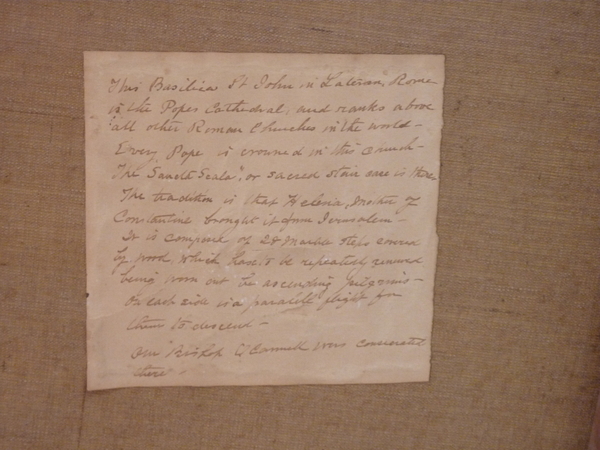 This Basilica St John in Lateran, Rome
is the Popes Cathedral, and ranks above
all other Roman Churches in the world -
Every Pope is crowned in this church -
The Sancte Scala", or sacred stair case is there
The tradition is that Helena, Mother of
Constantine brought it from Jerusalem -
It is compose of 28 Marble steps covered
by wood, which has to be repeatedly renewed
being worn out by ascending pilgrims -
On each side is a paralell flight for
them to descend -
Our Bishop O'Connell was consecrated
there